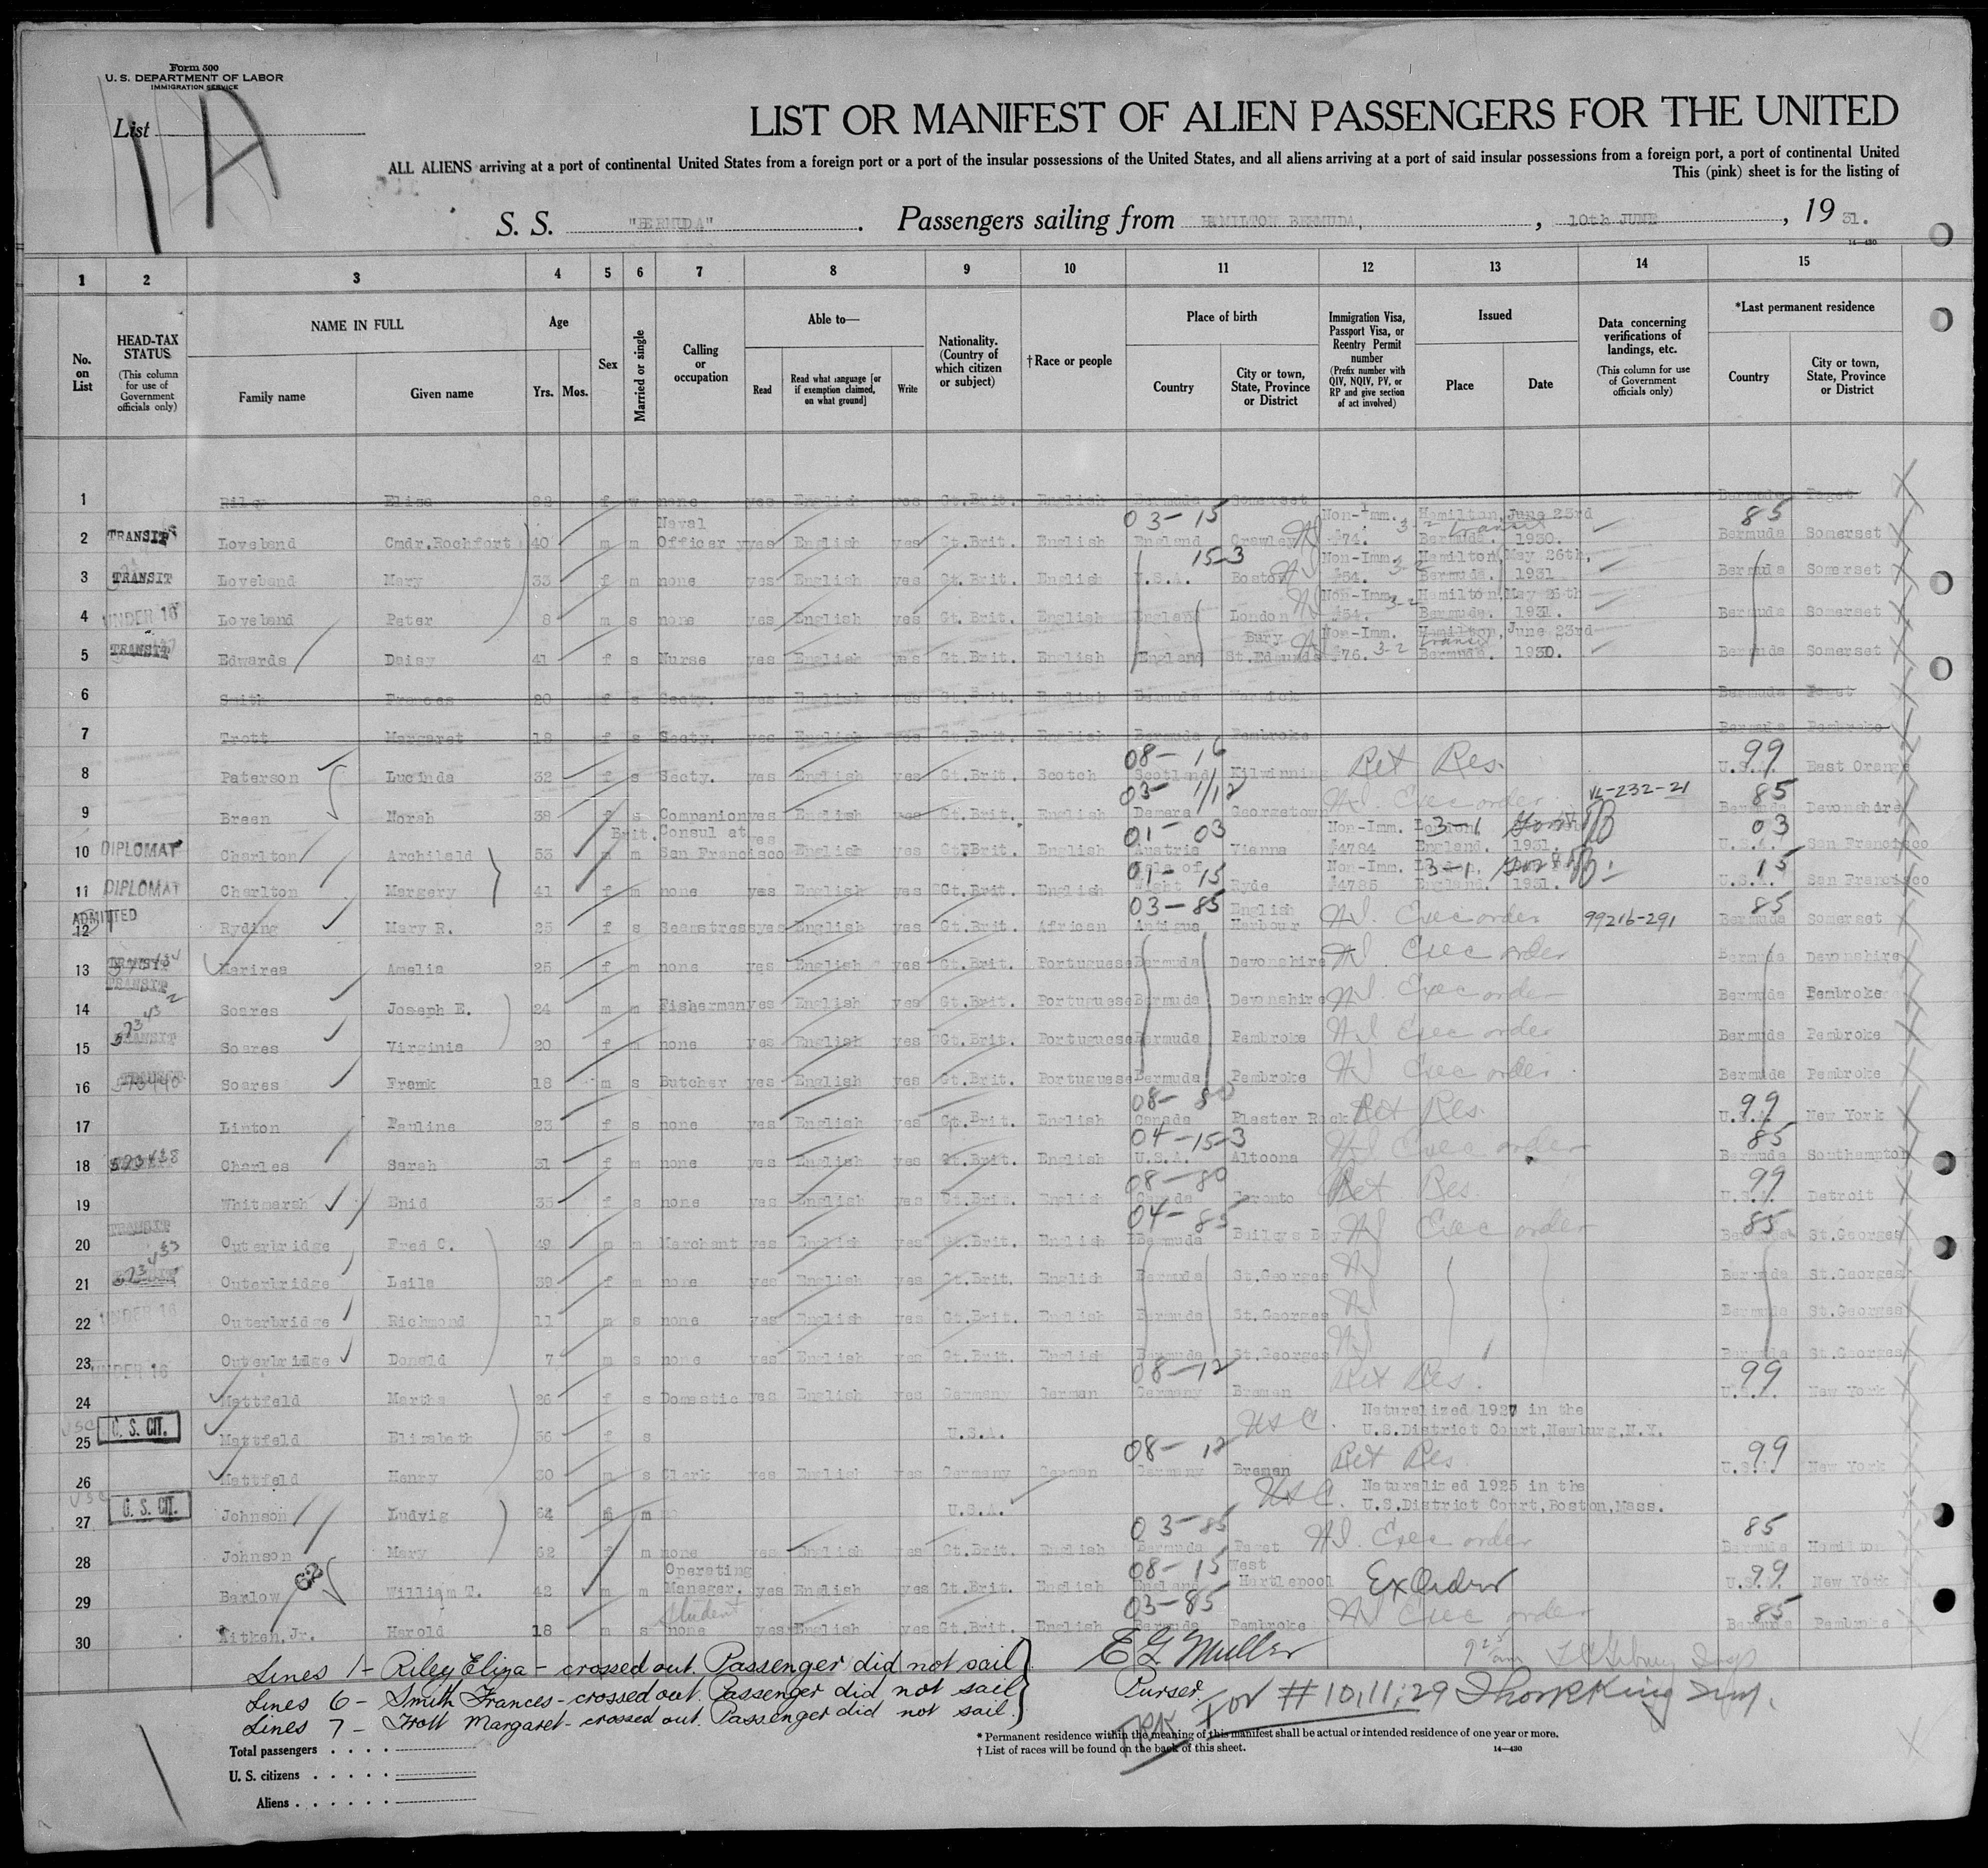 Form 500
U. S. DEPARTMENT OF LABOR
IMMIGRATION SERVICE
List
1A
LIST OR MANIFEST OF ALIEN PASSENGERS FOR THE UNITED
ALL ALIENS arriving at a port of continental United States from a foreign port or a port of the insular possessions of the United States, and all aliens arriving at a port of said insular possessions from a foreign port, a port of continental United
This (pink) sheet is for the listing of
S. S. "BERMUDA" . Passengers sailing from HAMILTON BERMUDA, , 10th JUNE , 19 31.
14—430
1 2 3 4 5 6 7 8 9 10 11 12 13 14 15
No. on List
HEAD-TAX STATUS (This column for use of Government officials only)
NAME IN FULL
Family name
Given name
Age
Yrs. Mos.
Sex
Married or single
Calling or occupation
Able to—
Read
Read what language [or if exemption claimed, on what ground]
Write
Nationality. (Country of which citizen or subject)
†Race or people
Place of birth
Country
City or town, State, Province or District
Immigration Visa, Passport Visa, or Reentry Permit number (Prefix number with QIV, NQIV, PV, or RP and give section of act involved)
Issued
Place
Date
Data concerning verifications of landings, etc. (This column for use of Government officials only)
*Last permanent residence
Country
City or town, State, Province or District
1 Riley Eliza 82 f w none yes English yes Gt.Brit. English Bermuda Somerset Bermuda Paget
2 TRANSIT Loveland Cmdr.Rochfort 40 m m Naval Officer yes English yes Gt.Brit. English 03-15 England Crawley Non-Imm. #74. 3-2 Hamilton, Bermuda. transit June 23rd 1930. 85 Bermuda Somerset
3 TRANSIT Loveband Mary 33 f m none yes English yes Gt.Brit. English 15-3 U.S.A. Boston Non-Imm. #54. 3-2 Hamilton, Bermuda. May 26th, 1931 Bermuda Somerset
4 UNDER 16 Loveband Peter 8 m s none yes English yes Gt.Brit. English England London Non-Imm. #54. 3-2 Hamilton, Bermuda. May 26th 1931. Bermuda Somerset
5 TRANSIT Edwards Daisy 41 f s Nurse yes English yes Gt.Brit. English England Bury St.Edmunds Non-Imm. #76. 3-2 Hamilton, Bermuda. transit June 23rd 1930. Bermuda Somerset
6 Smith Frances 20 f s Secty. yes English yes Gt.Brit. English Bermuda Warwick Bermuda Paget
7 Trott Margaret 18 f s Secty. yes English yes Gt.Brit. English Bermuda Pembroke Bermuda Pembroke
8 Paterson Lucinda 32 f s Secty. yes English yes Gt.Brit. Scotch 08-16 Scotland Kilwinning Ret Res. 99 U.S.A. East Orange
9 Breen Norah 38 f s Companion yes English yes Gt.Brit. English 03- Demara Georgetown Exec order VL-232-21 85 Bermuda Devonshire
10 DIPLOMAT Charlton Archibald 53 m m Brit. Consul at San Francisco yes English yes Gt.Brit. English 01-03 Austria Vienna Non-Imm. #4784 3-1 London, England. 1931. 03 U.S.A. San Francisco
11 DIPLOMAT Charlton Margery 41 f m none yes English yes Gt.Brit. English 01-15 Isle of Wight Ryde Non-Imm. #4785 3-1 London. England. 1931. 15 U.S.A. San Francisco
12 ADMITTED Ryding Mary R. 25 f s Seamstress yes English yes Gt.Brit. African 03-85 Antigua English Harbour Exec order 99216-291 85 Bermuda Somerset
13 TRANSIT Marires Amelia 25 f m none yes English yes Gt.Brit. Portuguese Bermuda Devonshire Exec order Bermuda Devonshire
14 TRANSIT Soares Joseph E. 24 m m Fisherman yes English yes Gt.Brit. Portuguese Bermuda Devonshire Exec order Bermuda Pembroke
15 TRANSIT Soares Virginia 20 f m none yes English yes Gt.Brit. Portuguese Bermuda Pembroke Exec order Bermuda Pembroke
16 Soares Frank 18 m s Butcher yes English yes Gt.Brit. Portuguese Bermuda Pembroke Exec order Bermuda Pembroke
17 Linton Pauline 23 f s none yes English yes Gt.Brit. English 08-80 Canada Plaster Rock Ret Res. 99 U.S.A. New York
18 573438 Charles Sarah 31 f m none yes English yes Gt.Brit. English 04-15-3 U.S.A. Altoona Exec order 85 Bermuda Southampton
19 Whitmarsh Enid 35 f s none yes English yes Gt.Brit. English 08-80 Canada Toronto Ret Res. 99 U.S.A. Detroit
20 TRANSIT Outerbridge Fred C. 49 m m Merchant yes English yes Gt.Brit. English 04-85 Bermuda Baileys Bay Exec order 85 Bermuda St.Georges
21 Outerbridge Leila 39 f m none yes English yes Gt.Brit. English Bermuda St.Georges Bermuda St.Georges
22 UNDER 16 Outerbridge Richmond 11 m s none yes English yes Gt.Brit. English Bermuda St.Georges Bermuda St.Georges
23 UNDER 16 Outerbridge Donald 7 m s none yes English yes Gt.Brit. English Bermuda St.Georges Bermuda St.Georges
24 Mattfeld Martha 26 f s Domestic yes English yes Germany German 08-12 Germany Bremen Ret Res. 99 U.S.A. New York
25 USC U. S. CIT. Mattfeld Elizabeth 36 f s U.S.A. USC. Naturalized 1927 in the U.S.District Court,Newburg,N.Y.
26 Mattfeld Henry 30 m s Clerk yes English yes Germany German 08-12 Germany Bremen Ret Res. 99 U.S.A. New York
27 USC U. S. CIT. Johnson Ludvig 64 m m U.S.A. USC. Naturalized 1925 in the U.S.District Court,Boston,Mass.
28 Johnson Mary 62 f m none yes English yes Gt.Brit. English 03-85 Bermuda Paget Exec order 85 Bermuda Hamilton
29 Barlow William T. 42 m m Operating Manager. yes English yes Gt.Brit. English 08-15 England West Hartlepool Ex Order 99 U.S.A. New York
30 Aitken, Jr. Harold 18 m s student none yes English yes Gt.Brit. English 03-85 Bermuda Pembroke Exec order 85 Bermuda Pembroke
Lines 1- Riley Eliza - crossed out. Passenger did not sail
Lines 6 - Smith Frances - crossed out. Passenger did not sail
Lines 7 - Trott Margaret - crossed out. Passenger did not sail.
E G Muller
Purser.
For # 10,11; 29 King Insp.
* Permanent residence within the meaning of this manifest shall be actual or intended residence of one year or more.
† List of races will be found on the back of this sheet.
14—430
Total passengers . . . .
U. S. citizens . . . . .
Aliens . . . . . .